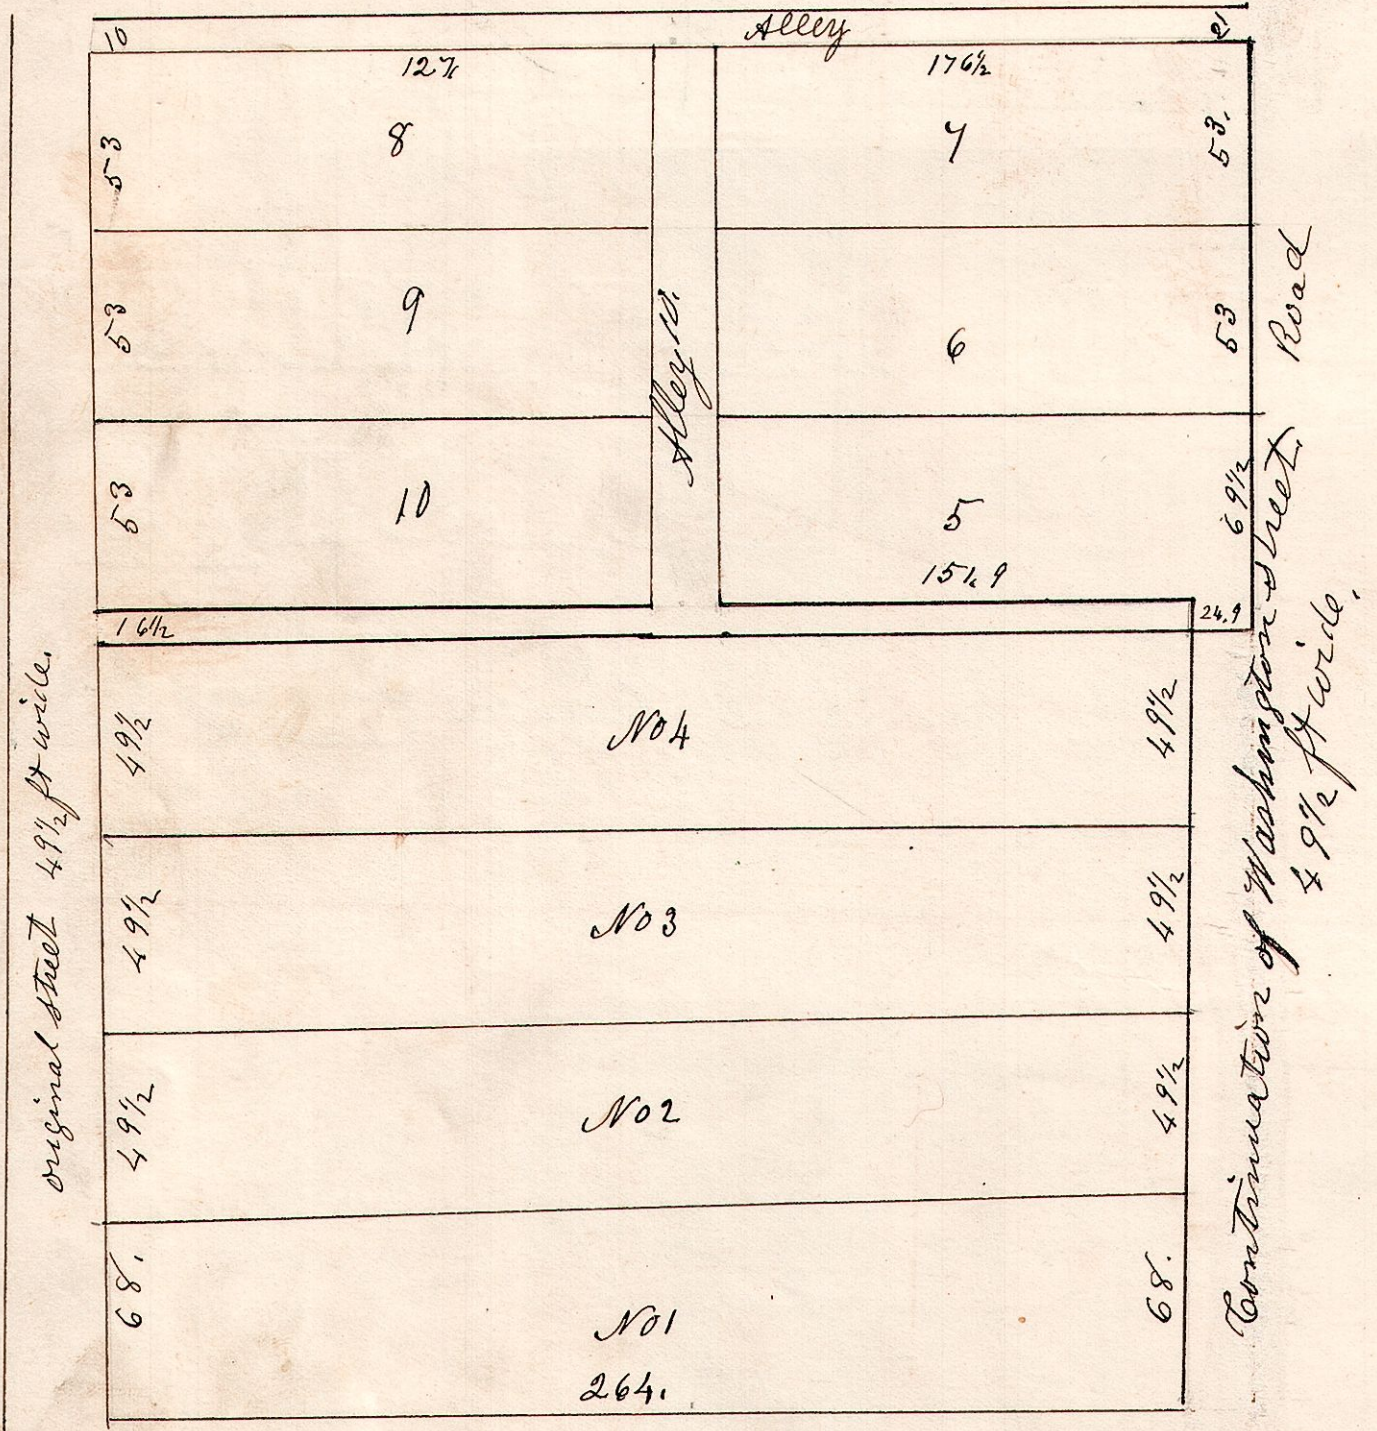 10 Alley 21
127 176½
53 8 7 53.
53 9 6 53
Road
Alley 10.
53 10 5 69½
151.9
16½ 24.9
49½ No 4 49½
49½ No 3 49½
49½ No 2 49½
68. No 1 68.
264.
original street 49½ ft wide.
Continuation of Washington street.
49½ ft wide.